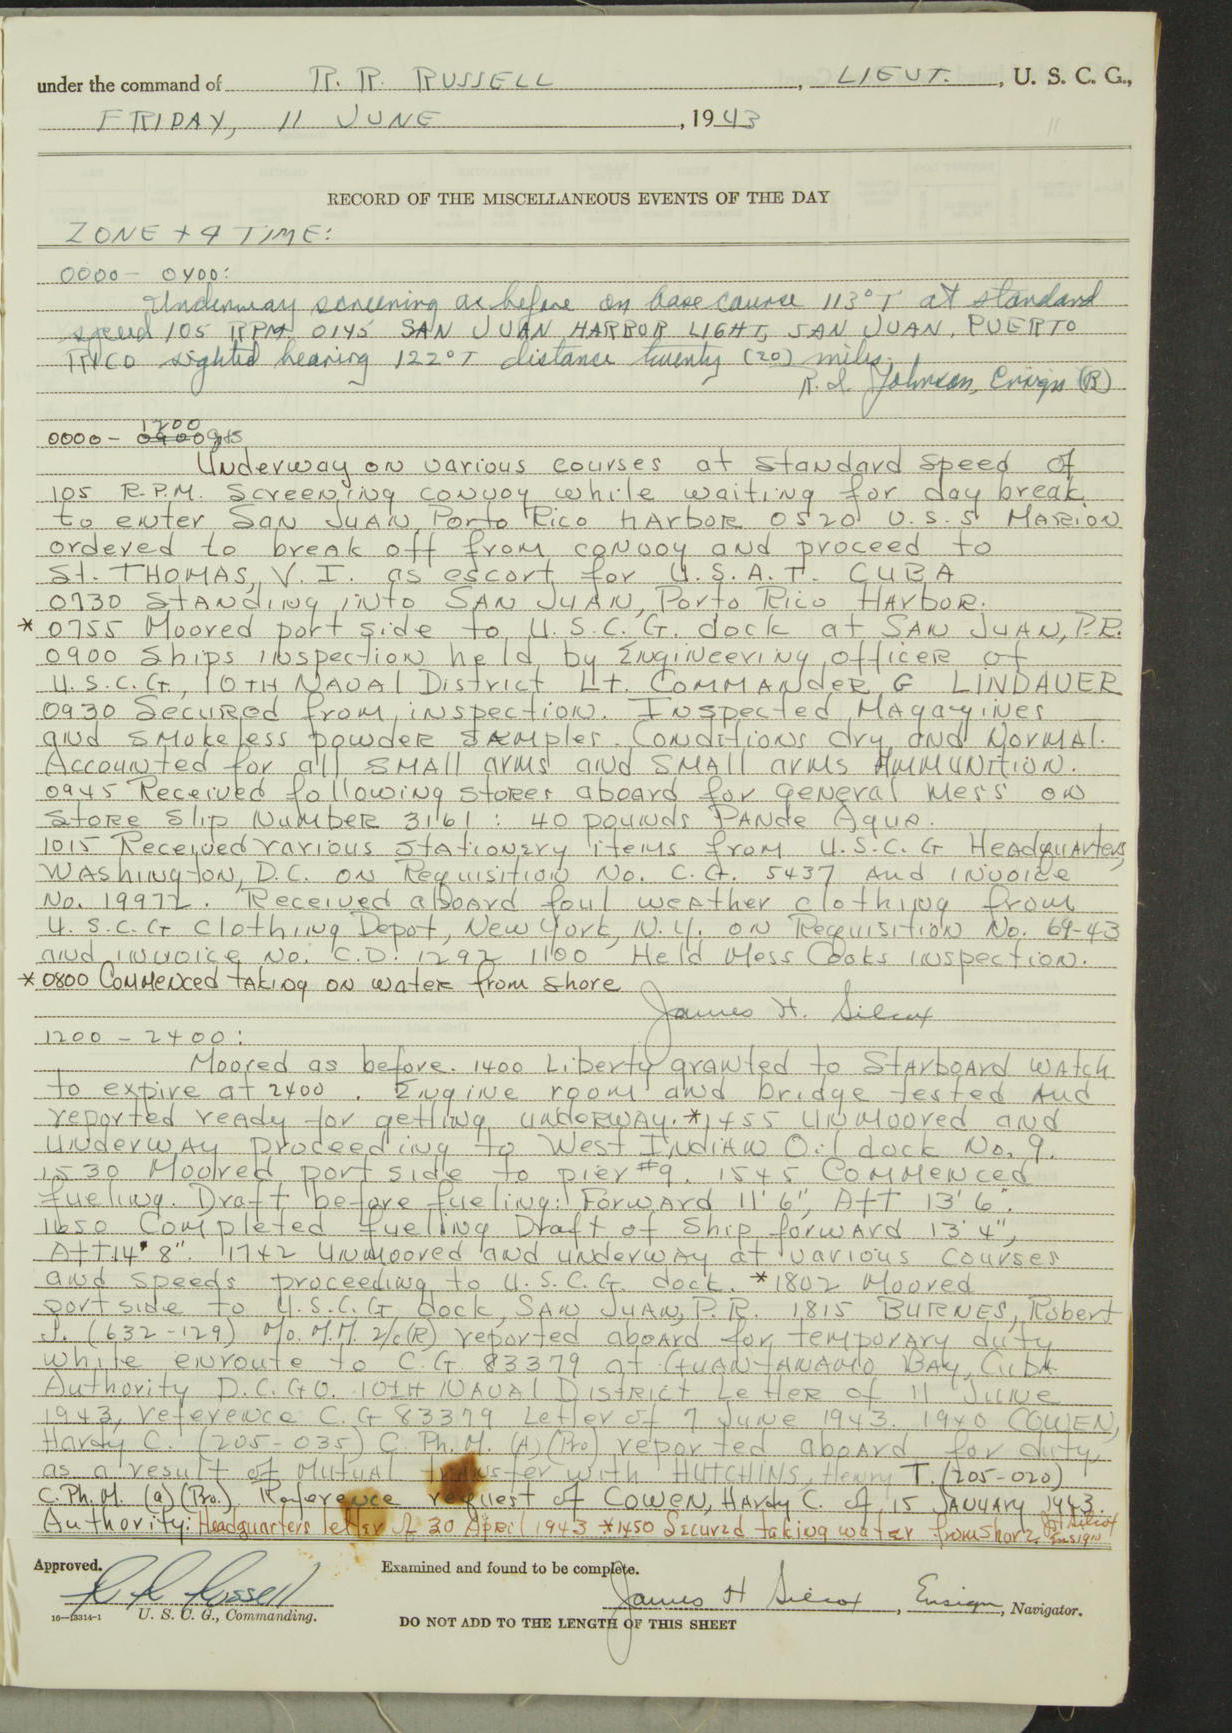 under the command of R. R. RUSSELL, LIEUT., U. S. C. G.,
FRIDAY, 11 JUNE, 1943
RECORD OF THE MISCELLANEOUS EVENTS OF THE DAY
ZONE + 4 TIME:
0000 - 0400:
Underway screening as before on base course 113°T at standard
speed 105 RPM 0145 SAN JUAN HARBOR LIGHT, SAN JUAN, PUERTO
RICO sighted bearing 122°T distance twenty (20) miles.
Johnson, Ensign (R)
0000 - 1200
Underway on various courses at standard speed of
105 R.P.M. Screening convoy while waiting for day break
to enter San JUAN, Porto Rico hArboR 0520 U.S.S MARION
ordered to break off from convoy and proceed to
St. THOMAS, V. I. as escort for U.S.A.T. CUBA
0730 StANding into SAN JUAN, Porto Rico HArboR.
* 0755 Moored port side to U.S.C.G. dock at SAN JUAN, P.R.
0900 Ships inspection held by Engineering officer of
U.S.C.G., 10TH NAVAl District Lt. COMMANdeR G LINDAUER
0930 Secured from inspection. Inspected MAgazines
and smokeless powdeR SAMples. Conditions dry and NorMAl.
Accounted for all SMAll arms and SMAll arms AMMUNITION.
0945 Received following stores aboard for general Mess on
StoRe Slip NumbeR 3161 : 40 pounds PANde Aqua.
1015 Received various stationery items from U.S.C.G HeadquArters,
WAshington, D.C. on Requisition No. C.G. 5437 And invoice
No. 19972. Received aboard foul weather clothing from
U.S.C.G Clothing Depot, New York, N.Y. on Requisition No. 69-43
and invoice No. C.D. 1292 1100 Held Mess Cooks inspection.
* 0800 Commenced taking on water from shore
James H. Silcox
1200 - 2400:
Moored as before. 1400 Liberty granted to StArboArd WAtch
to expire at 2400. Engine room and bridge tested And
reported ready for getting underway. *1455 UNMoored and
UNderWAy proceeding to West INdiAN Oil dock No. 9.
1530 Moored port side to pier #9. 1545 Commenced
fueling. Draft before fueling: Forward 11' 6", Aft 13' 6".
1650 Completed fueling Draft of Ship forward 13' 4",
Aft 14' 8". 1742 UNMoored and underway at various courses
and speeds proceeding to U.S.C.G. dock. *1802 Moored
port side to U.S.C.G dock, SAN JUAN, P.R. 1815 BURNES, Robert
J. (632-129) Mo.M.M. 2/c(R) reported aboard for temporary duty
while enroute to C.G. 83379 at GUANTANAMO BAY, CubA
Authority D.C.GO. 10TH NAVAl District LetteR of 11 June
1943, reference C.G 83379 Letter of 7 June 1943. 1940 COWEN,
Hardy C. (205-035) C.Ph.M. (A)(Pro) reported aboard for duty,
as a result of Mutual transfer with HUTCHINS, Henry T. (205-020)
C.Ph.M. (a)(Pro.). Reference request of COWEN, HArdy C. of 15 JANUARY 1943.
Authority: Headquarters letter of 30 April 1943 *1450 Secured taking water from shore JH Silcox Ensign
Approved.
R R Russell
U. S. C. G., Commanding.
16—13314-1
Examined and found to be complete.
James H Silcox, Ensign, Navigator.
DO NOT ADD TO THE LENGTH OF THIS SHEET